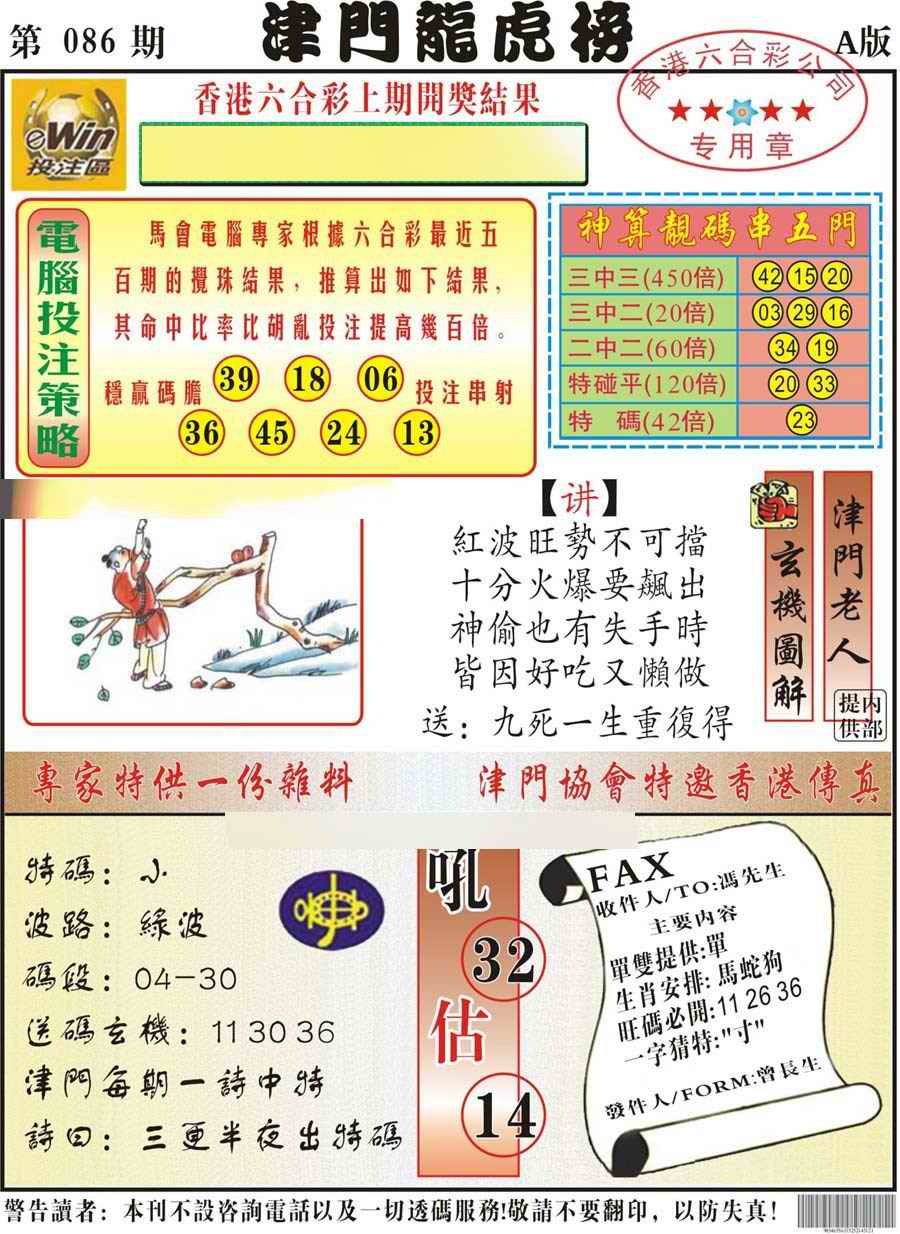 第 086 期
津門龍虎榜
A版
香港六合彩公司
专用章
eWin
投注區
香港六合彩上期開獎結果
電腦投注策略
馬會電腦專家根據六合彩最近五
百期的攪珠結果，推算出如下結果，
其命中比率比胡亂投注提高幾百倍。
穩贏碼膽 39 18 06 投注串射
36 45 24 13
神算靚碼串五門
三中三(450倍) 42 15 20
三中二(20倍) 03 29 16
二中二(60倍) 34 19
特碰平(120倍) 20 33
特 碼(42倍) 23
【讲】
紅波旺勢不可擋
十分火爆要飆出
神偷也有失手時
皆因好吃又懶做
送：九死一生重復得
玄機圖解
津門老人
内部提供
專家特供一份雜料
津門協會特邀香港傳真
特碼：小
波路：綠波
碼段：04-30
送碼玄機：11 30 36
津門每期一詩中特
詩曰：三更半夜出特碼
吼
32
估
14
FAX
收件人/TO:馮先生
主要内容
單雙提供:單
生肖安排:馬蛇狗
旺碼必開:11 26 36
一字猜特:"寸"
發件人/FORM:曾長生
警告讀者：本刊不設咨詢電話以及一切透碼服務!敬請不要翻印，以防失真！